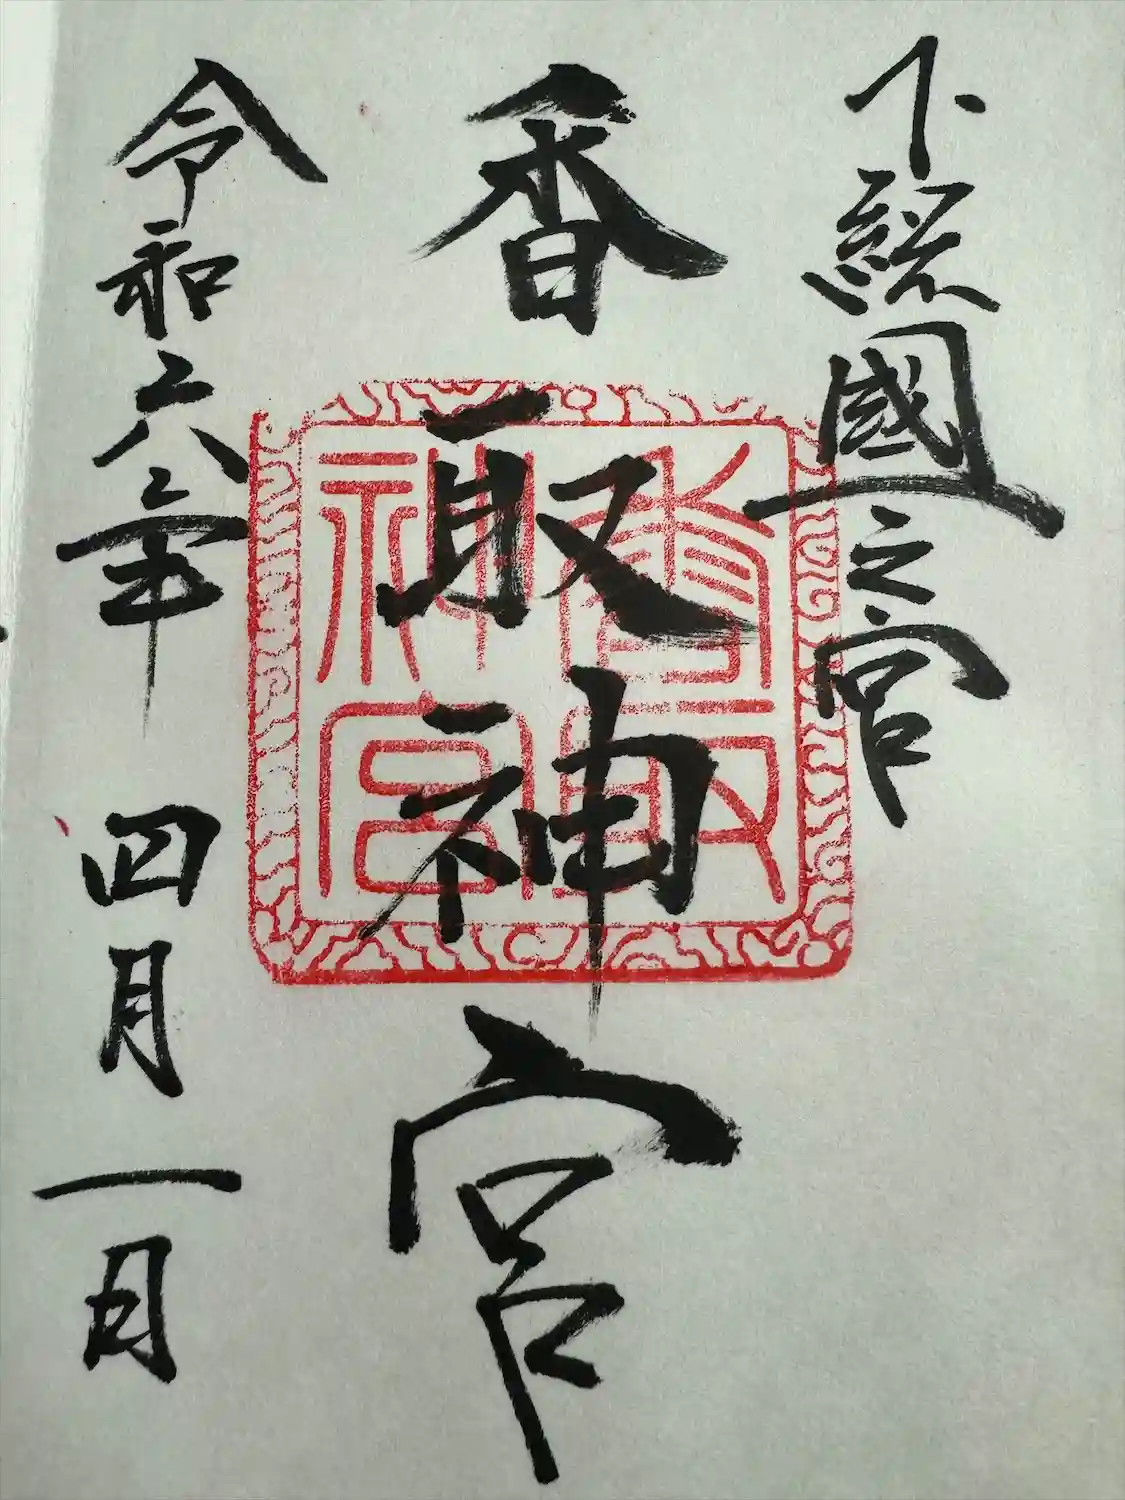 下総國一之宮
香取神宮
令和六年 四月一日
香取神宮